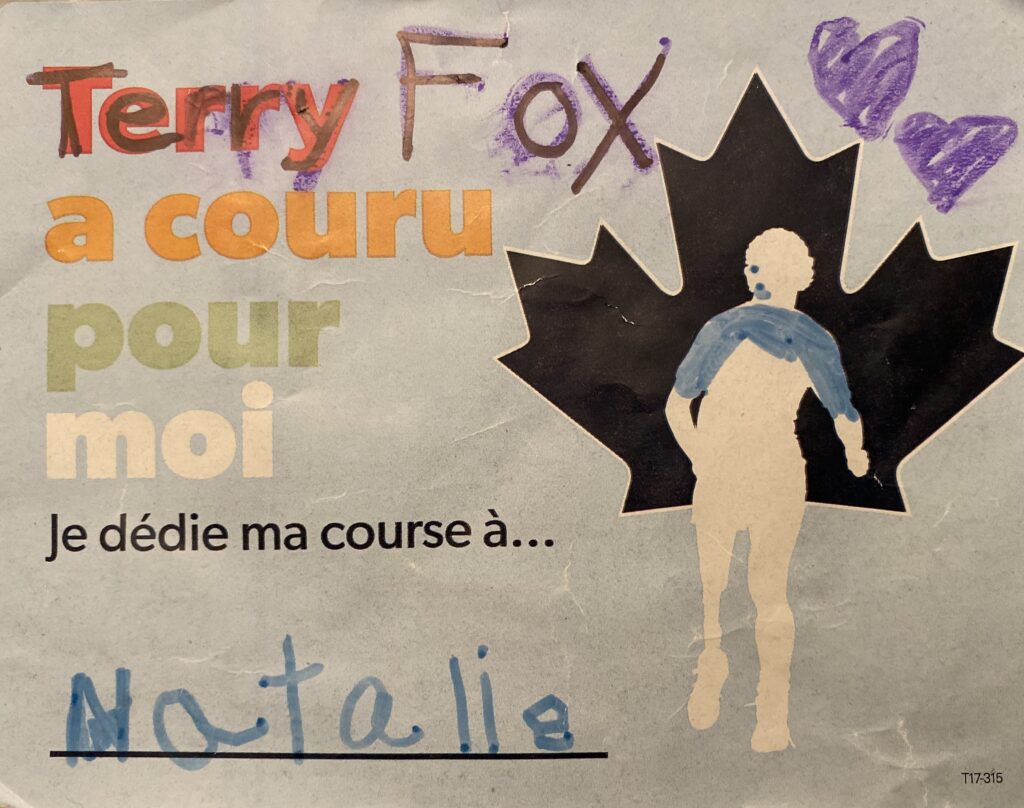 Terry Fox
a couru
pour
moi
Je dédie ma course à...
Natalie
T17-315